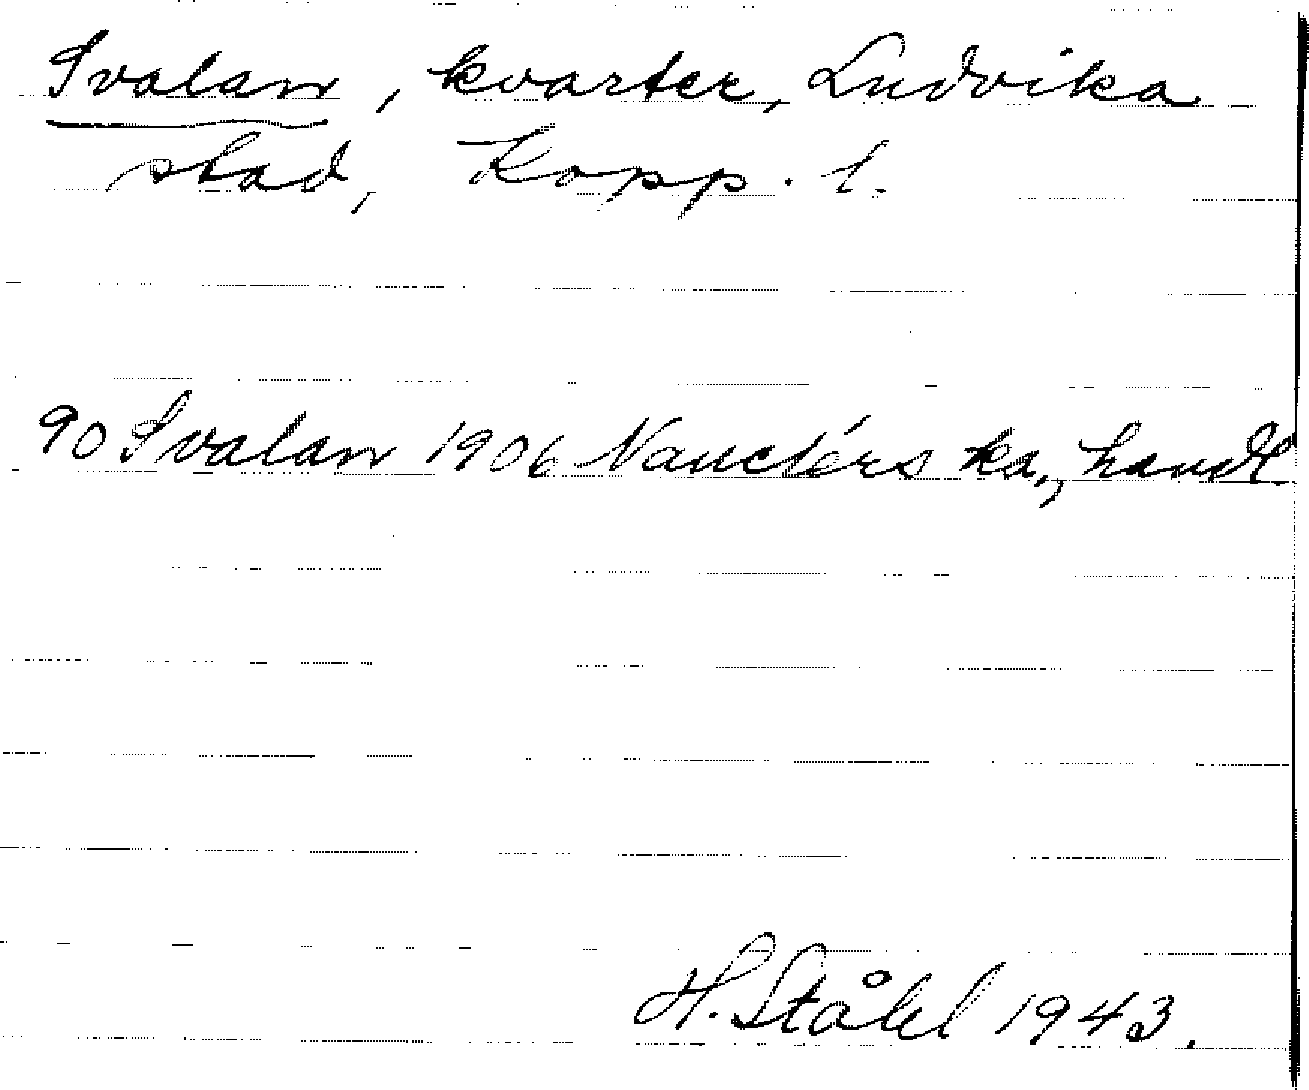 Svalan, kvarter, Ludvika
stad, Kopp. l.
90 Svalan 1906 Nauclérs ka., handl
H. Ståhl 1943.